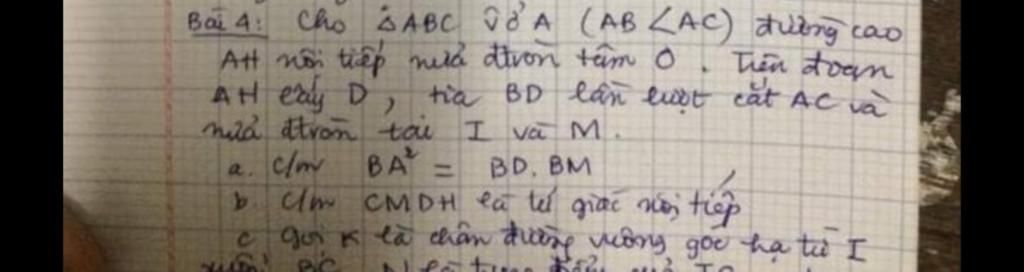 Bài 4: Cho △ABC v ở A (AB < AC) đường cao
AH nội tiếp nửa đtròn tâm O. Trên đoạn
AH lấy D, tia BD lần lượt cắt AC và
nửa đtròn tại I và M.
a. C/m BA² = BD.BM
b. C/m CMDH là tứ giác nội tiếp
c. Gọi K là chân đường vuông góc hạ từ I
BC